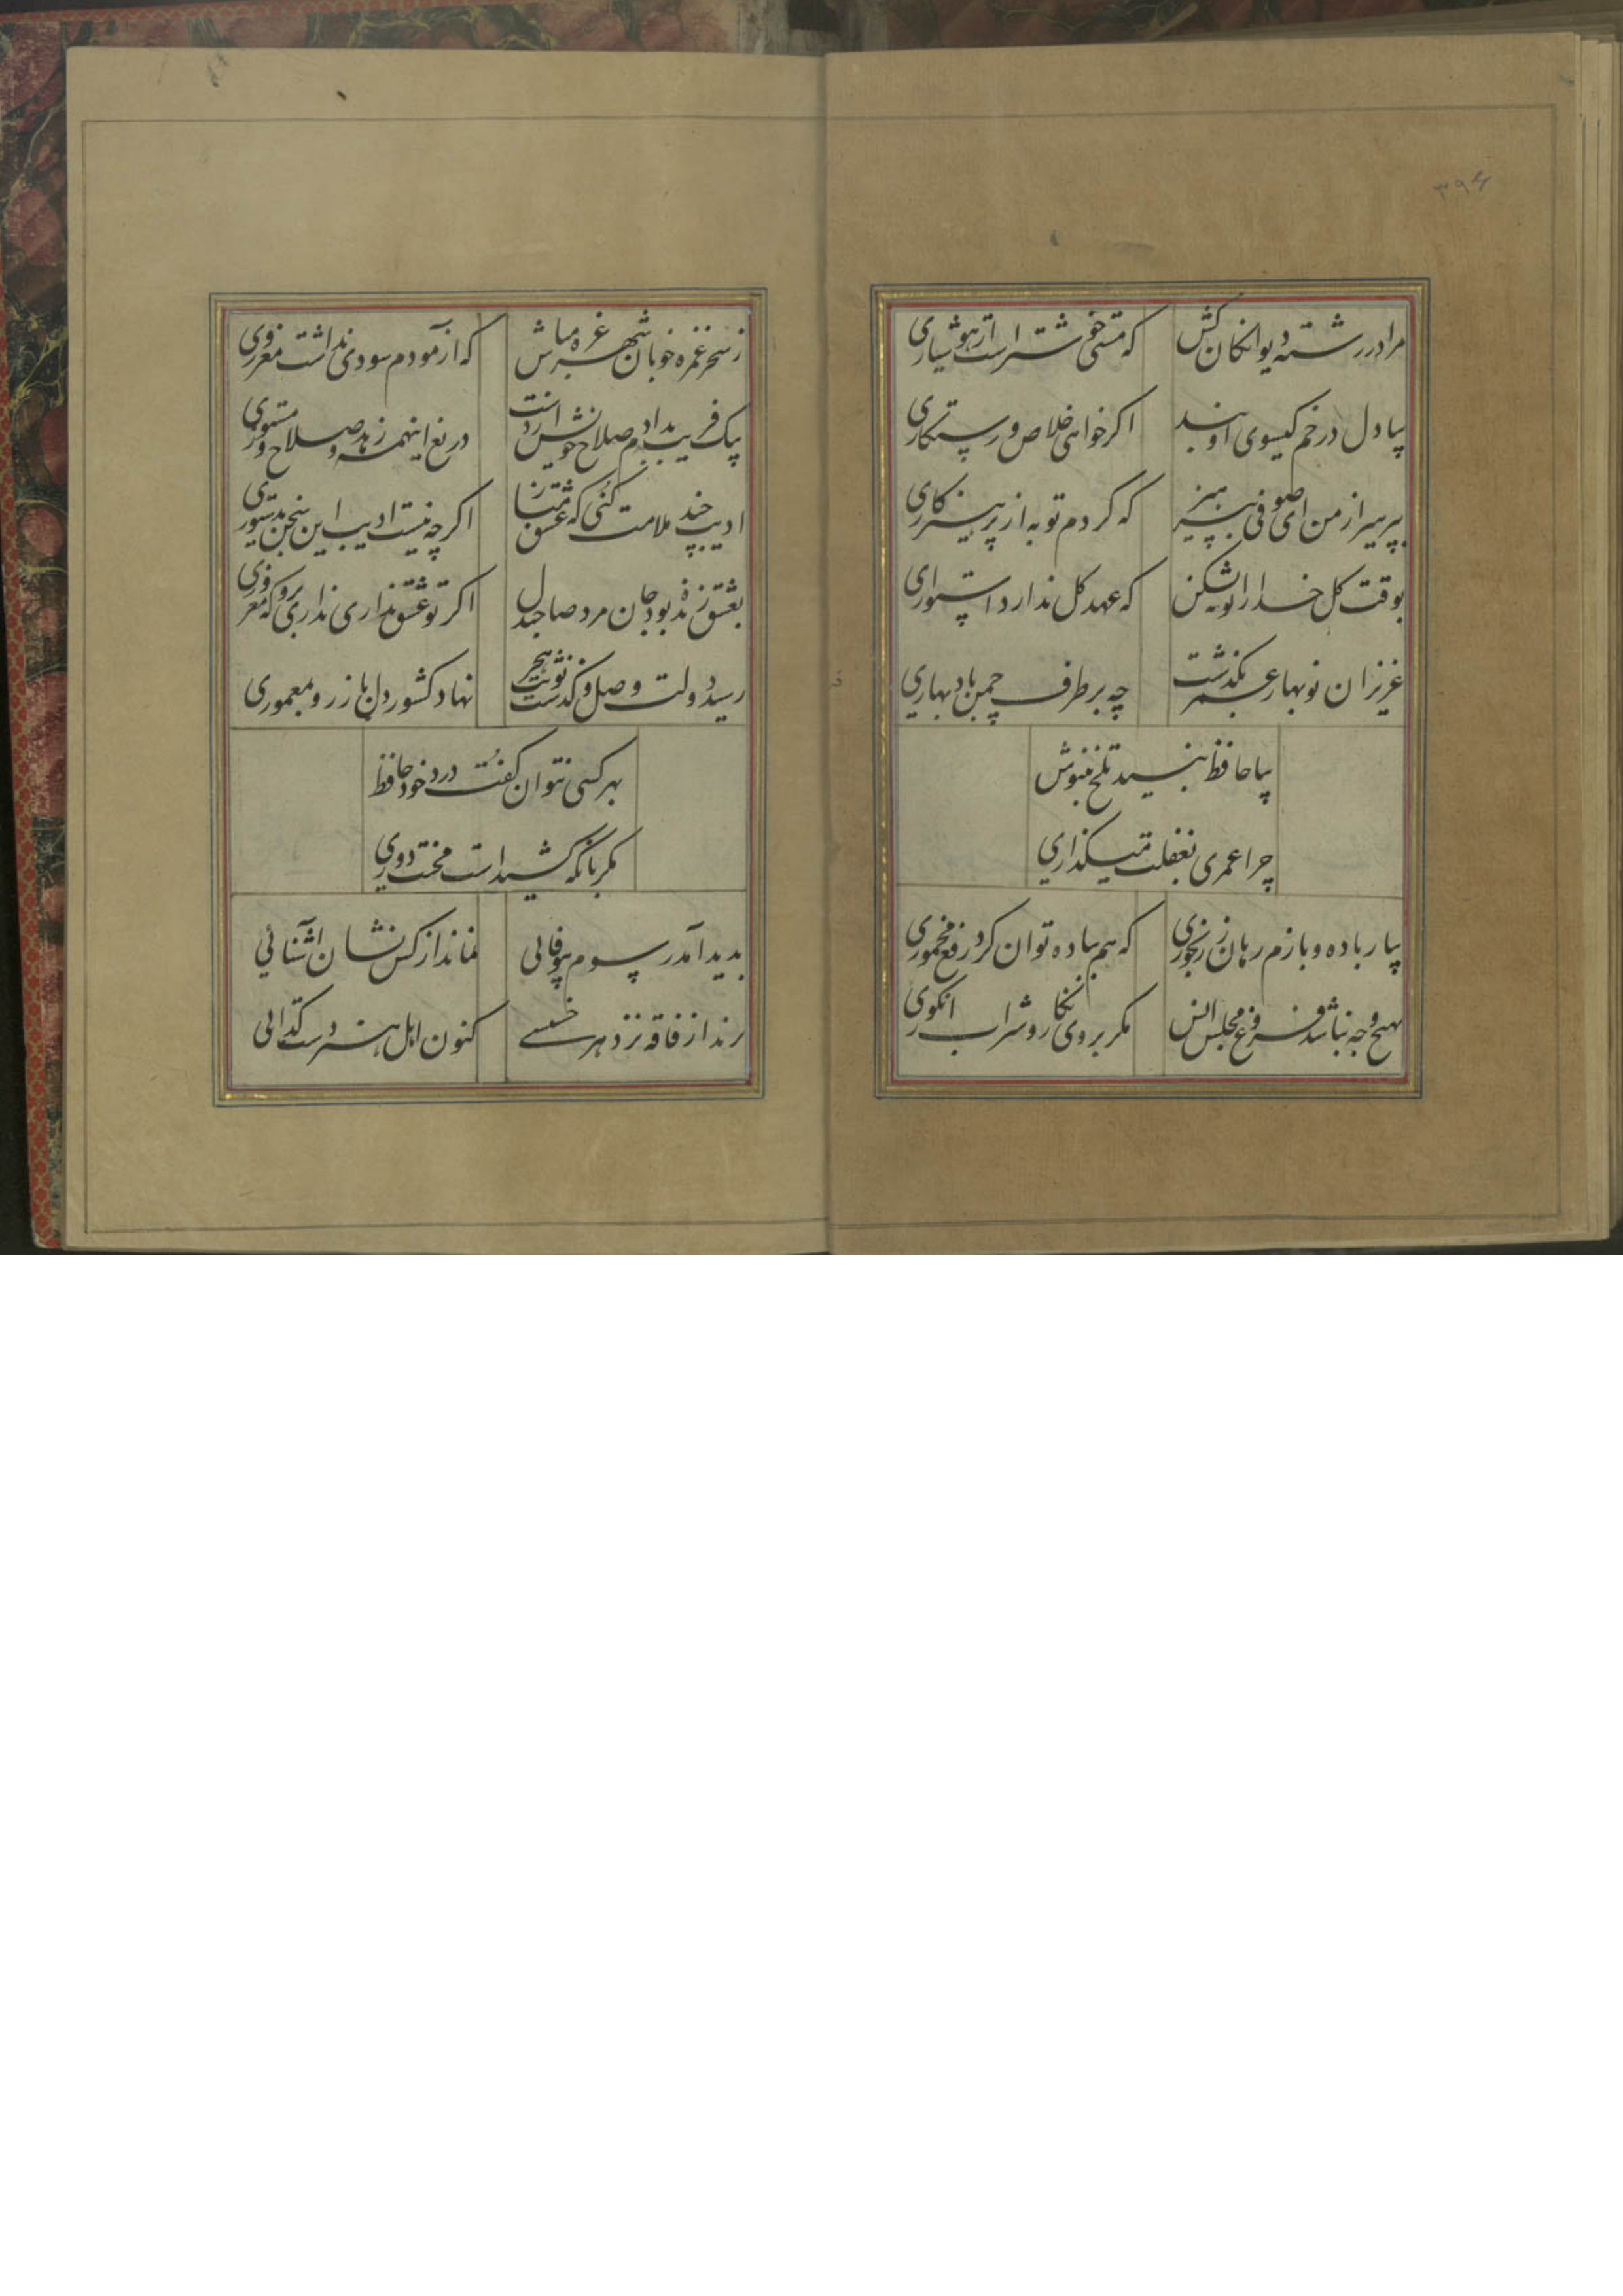 ۳۹۶
مرا در رشته دیوانکان کش
که مستی خوشتر است از هوشیاری
بیا دل در خم کیسوی او بند
اکر خواهی خلاص و رستکاری
بپرهیز از من ای صوفی بپرهیز
که کردم توبه از پرهیزکاری
بوقت کل خدا را توبه بشکن
که عهد کل ندارد استواری
عزیزان نوبهار عمر بکذشت
چه بر طرف چمن باد بهاری
بیا حافظ تلخ بنوش
چرا عمری بغفلت میکذاری
بیار باده و بازم رهان ز رنجوری
که هم بباده توان کرد رفع مخموری
بهیچ وجه نباشد فروغ مجلس انس
مکر بروی نکار و شراب انکوری
ز سحر غمزه خوبان شهر غره مباش
که آزمودم سودی نداشت مغروری
بیک فریب بدادم صلاح خویش از دست
دریغ اینهمه زهد و صلاح و مستوری
ادیب چند ملامت کنی که عشق مباز
اکرچه نیست ادیب این سخن بدستوری
بعشق زنده بود جان مرد صاحبدل
اکر تو عشق نداری برو که معذوری
رسید دولت وصل و کذشت نوبت هجر
نهاد کشور دل باز رو بمعموری
بهر کسی نتوان کفت درد خود حافظ
مکر بانکه کشیداست محنت دوری
بدید آمد رسوم بیوفائی
نماند از کس نشان آشنائی
برند از فاقه نزد هر خسیسی
کنون اهل هنر دست کدائی